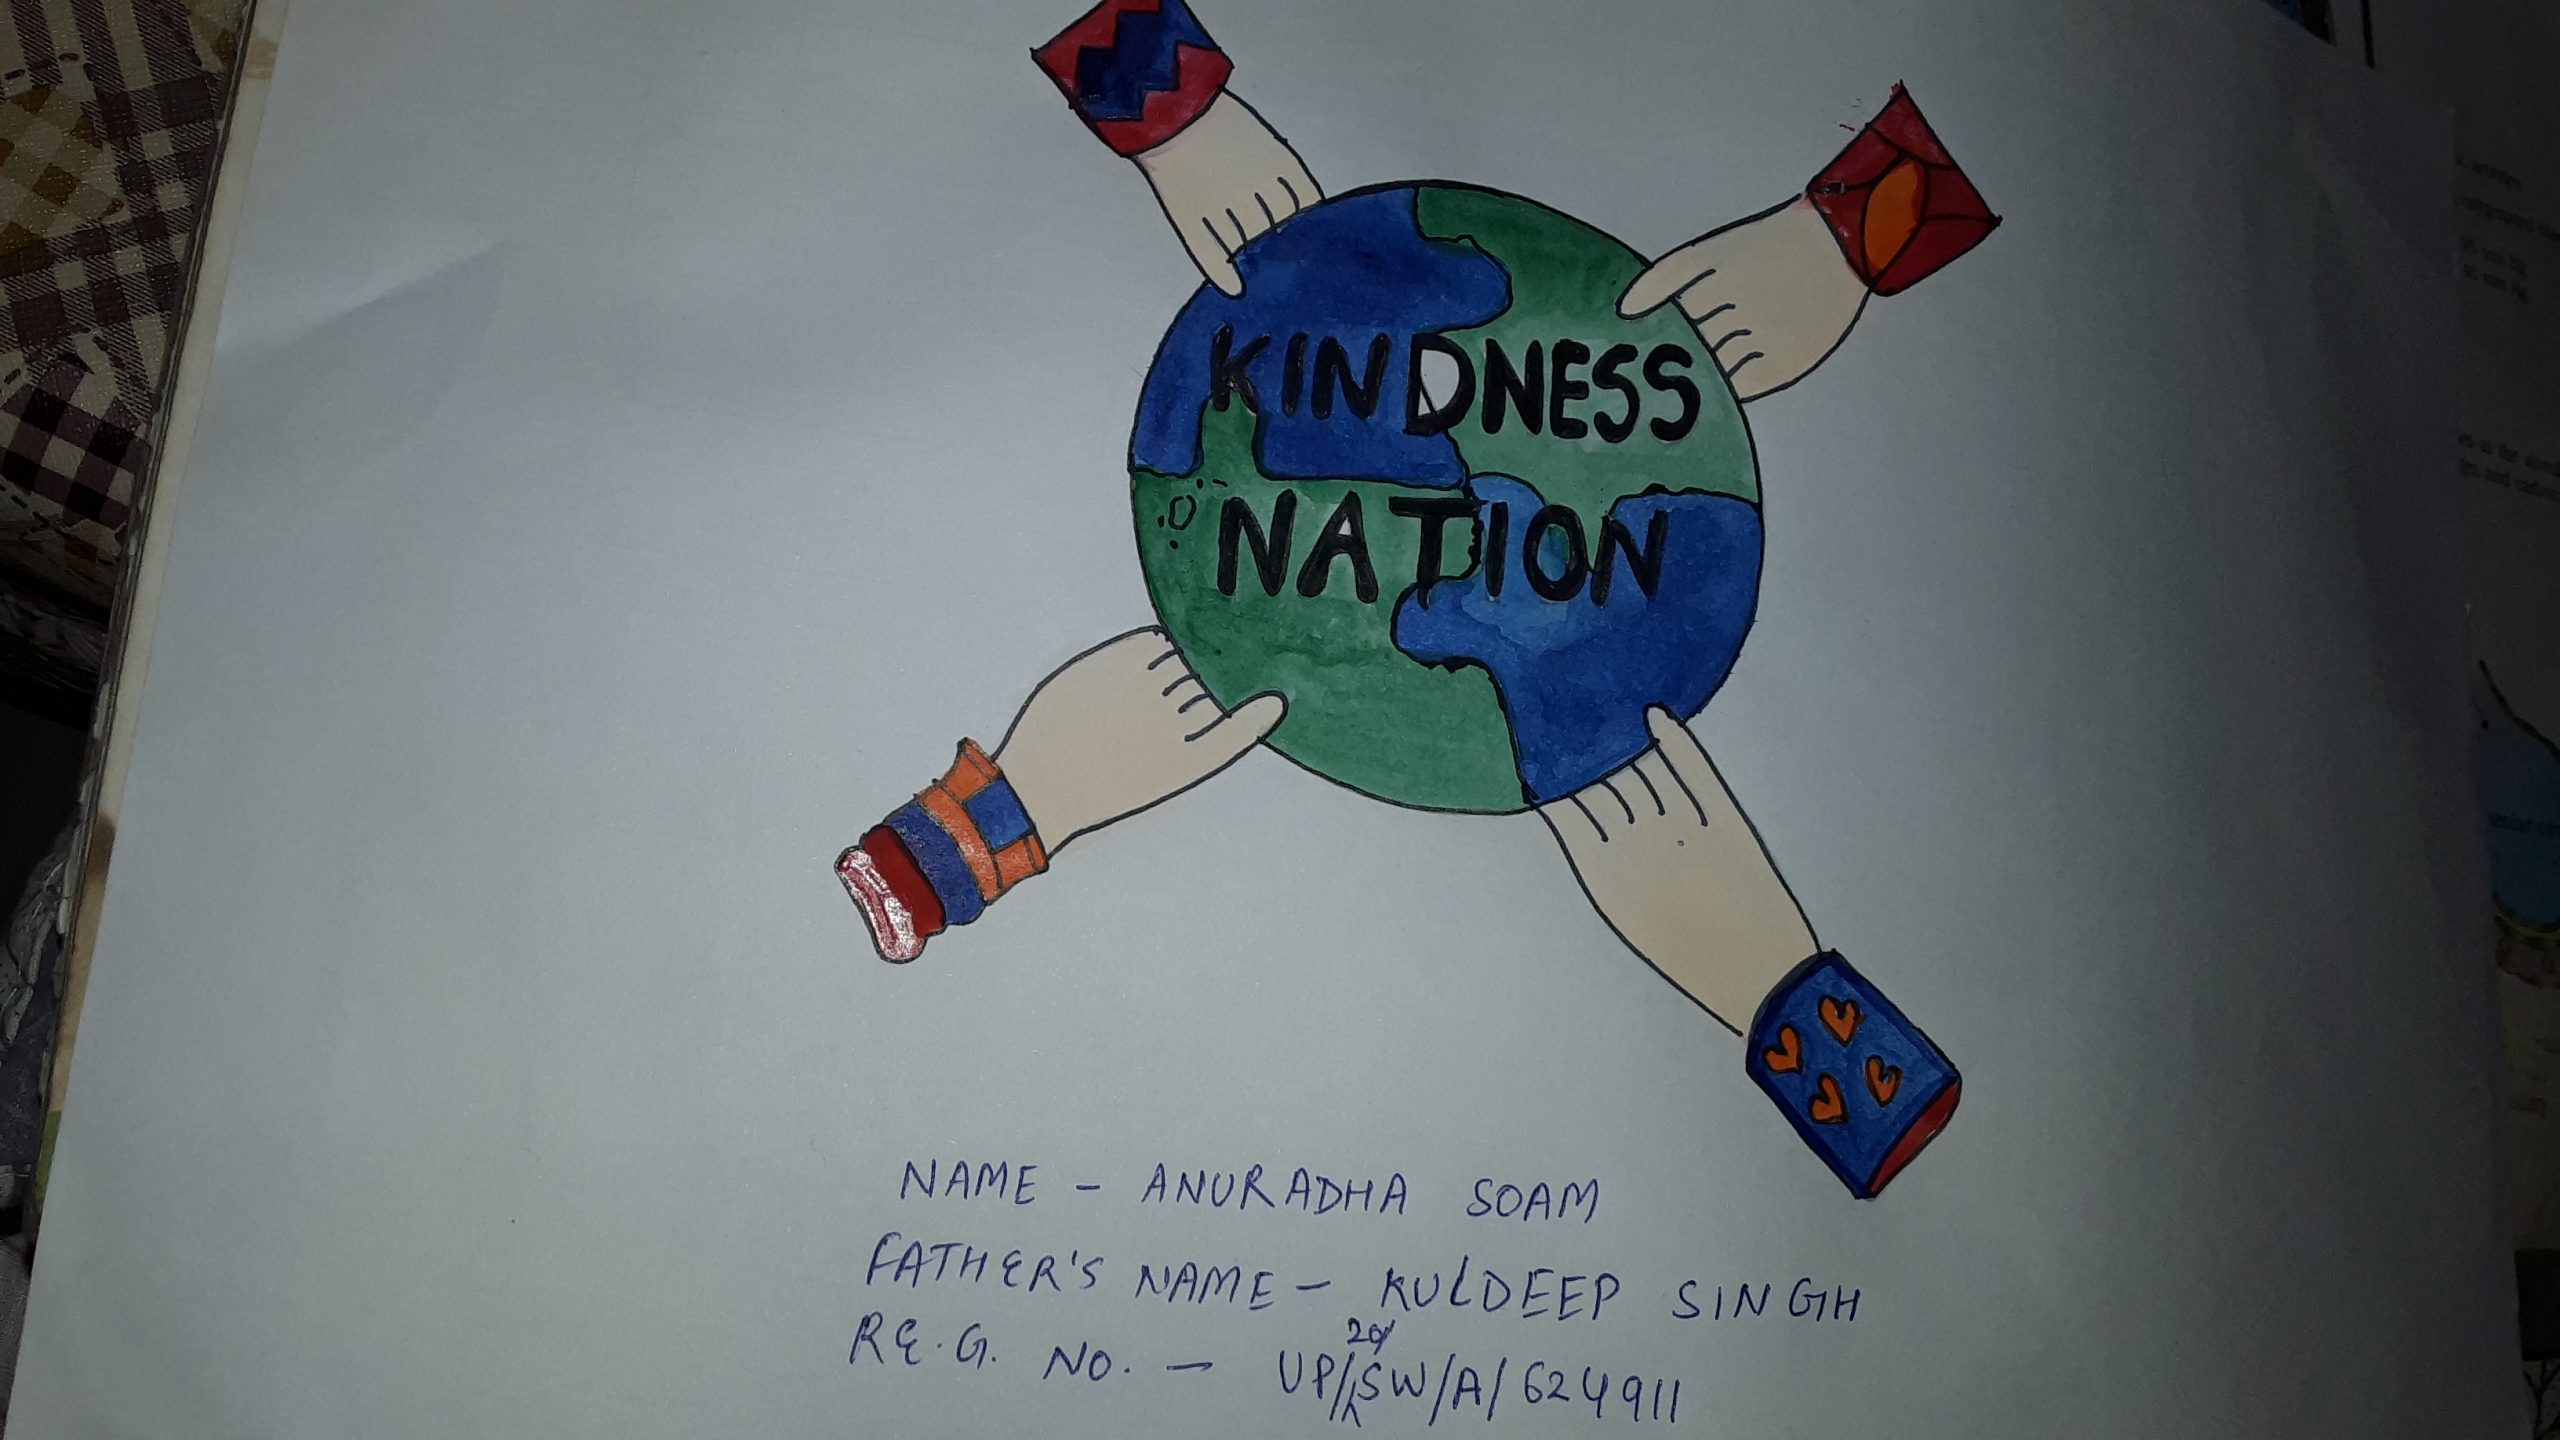 KINDNESS
NATION
NAME - ANURADHA SOAM
FATHER'S NAME - KULDEEP SINGH
RE.G. NO. - UP/20/SW/A/624911